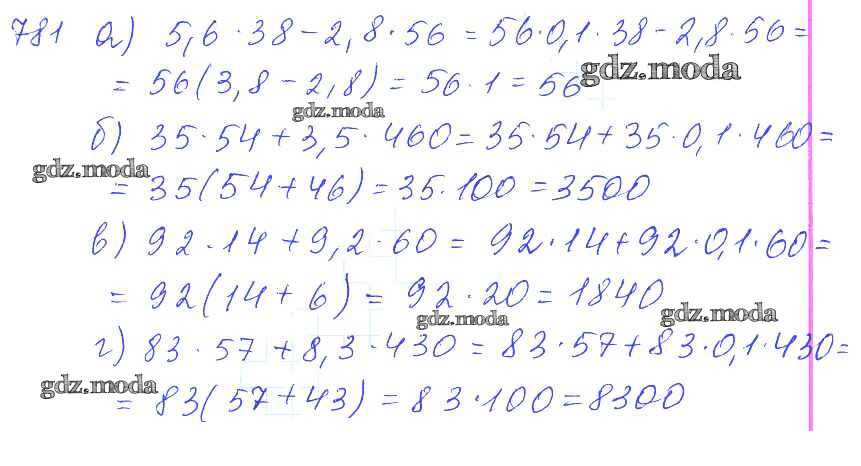 781 а) 5,6 · 38 - 2,8 · 56 = 56 · 0,1 · 38 - 2,8 · 56 =
= 56(3,8 - 2,8) = 56 · 1 = 56 gdz.moda
gdz.moda
б) 35 · 54 + 3,5 · 460 = 35 · 54 + 35 · 0,1 · 460 =
gdz.moda
= 35(54 + 46) = 35 · 100 = 3500
в) 92 · 14 + 9,2 · 60 = 92 · 14 + 92 · 0,1 · 60 =
= 92(14 + 6) = 92 · 20 = 1840
gdz.moda gdz.moda
г) 83 · 57 + 8,3 · 430 = 83 · 57 + 83 · 0,1 · 430 =
gdz.moda
= 83(57 + 43) = 83 · 100 = 8300